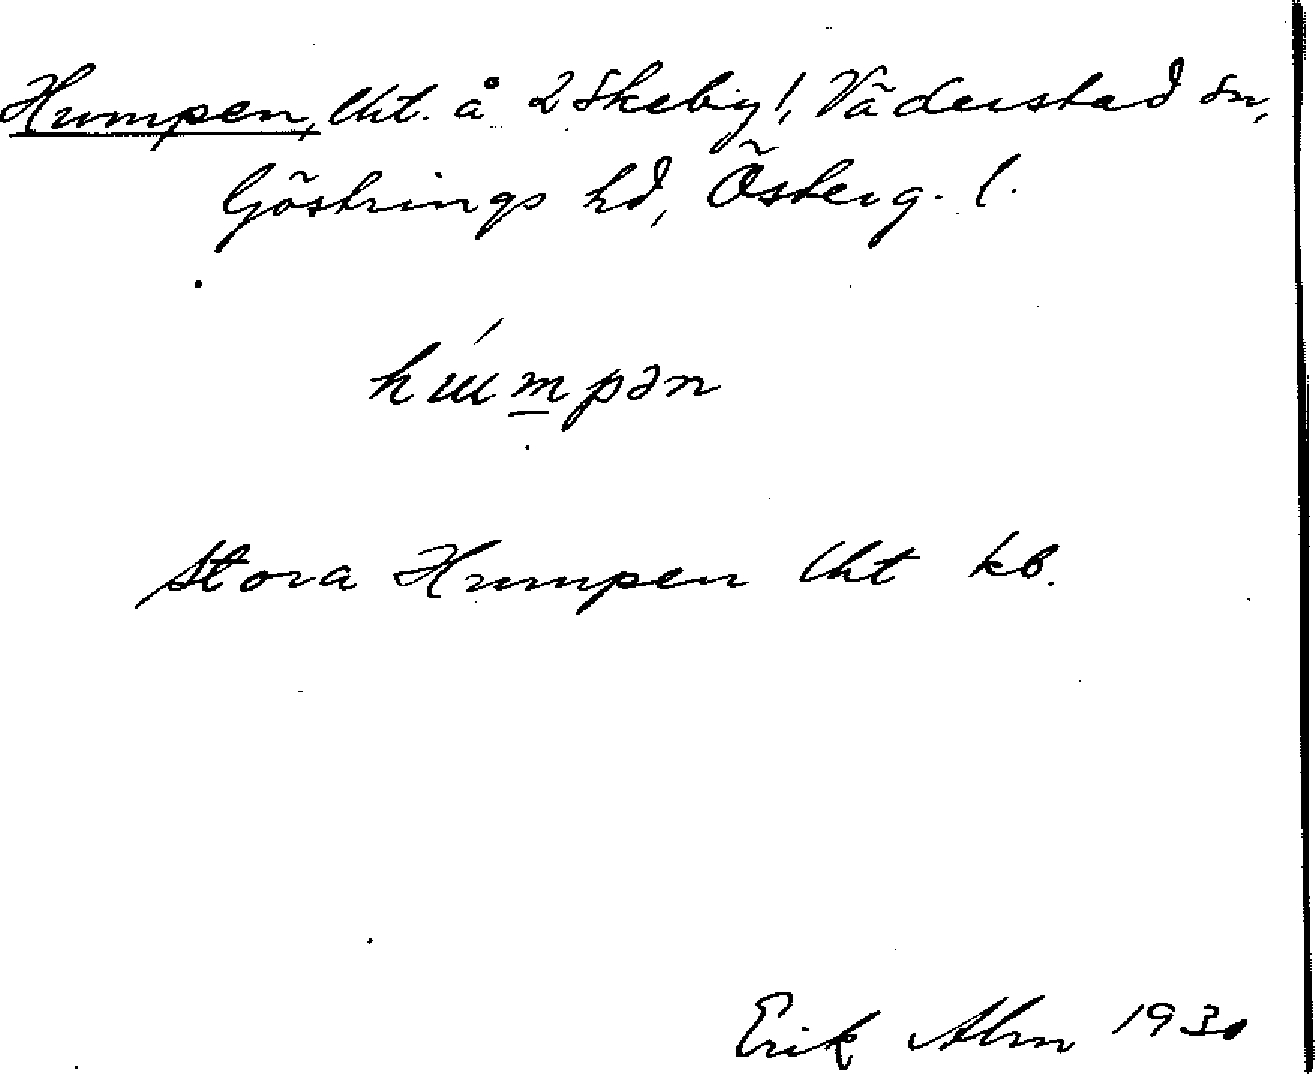 Humpen, lht. å 2 Skeby!, Väderstad sn,
Göstrings hd, Österg. l.
húmpən
Stora Humpen lht kb.
Erik Alm 1930